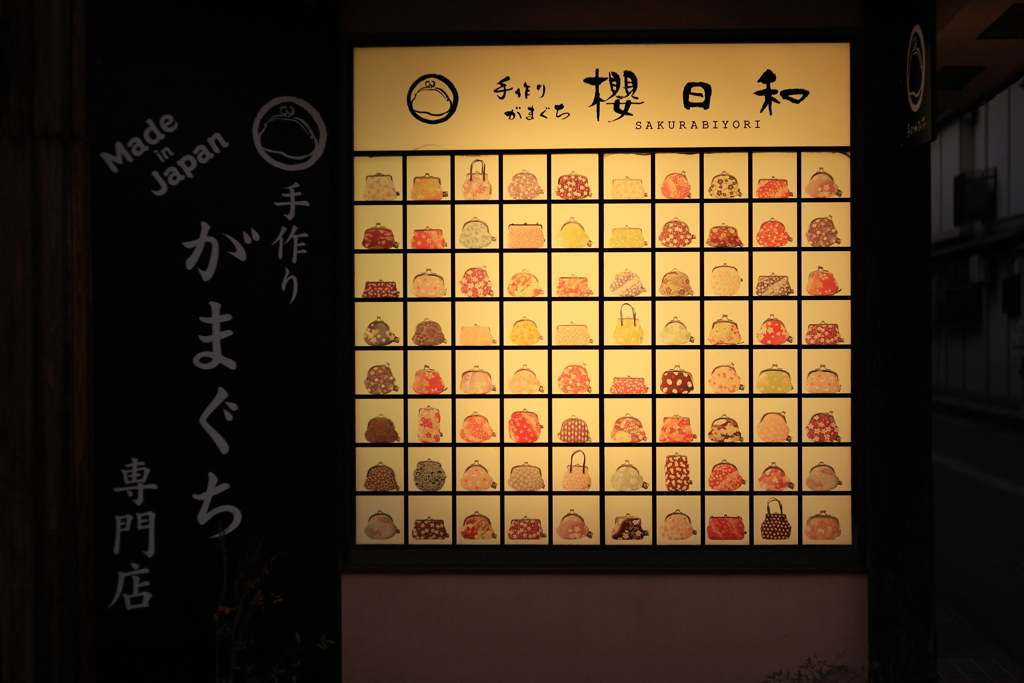 手作り
がまぐち
櫻日和
SAKURABIYORI
Made
in
Japan
手作り
がまぐち
専門店